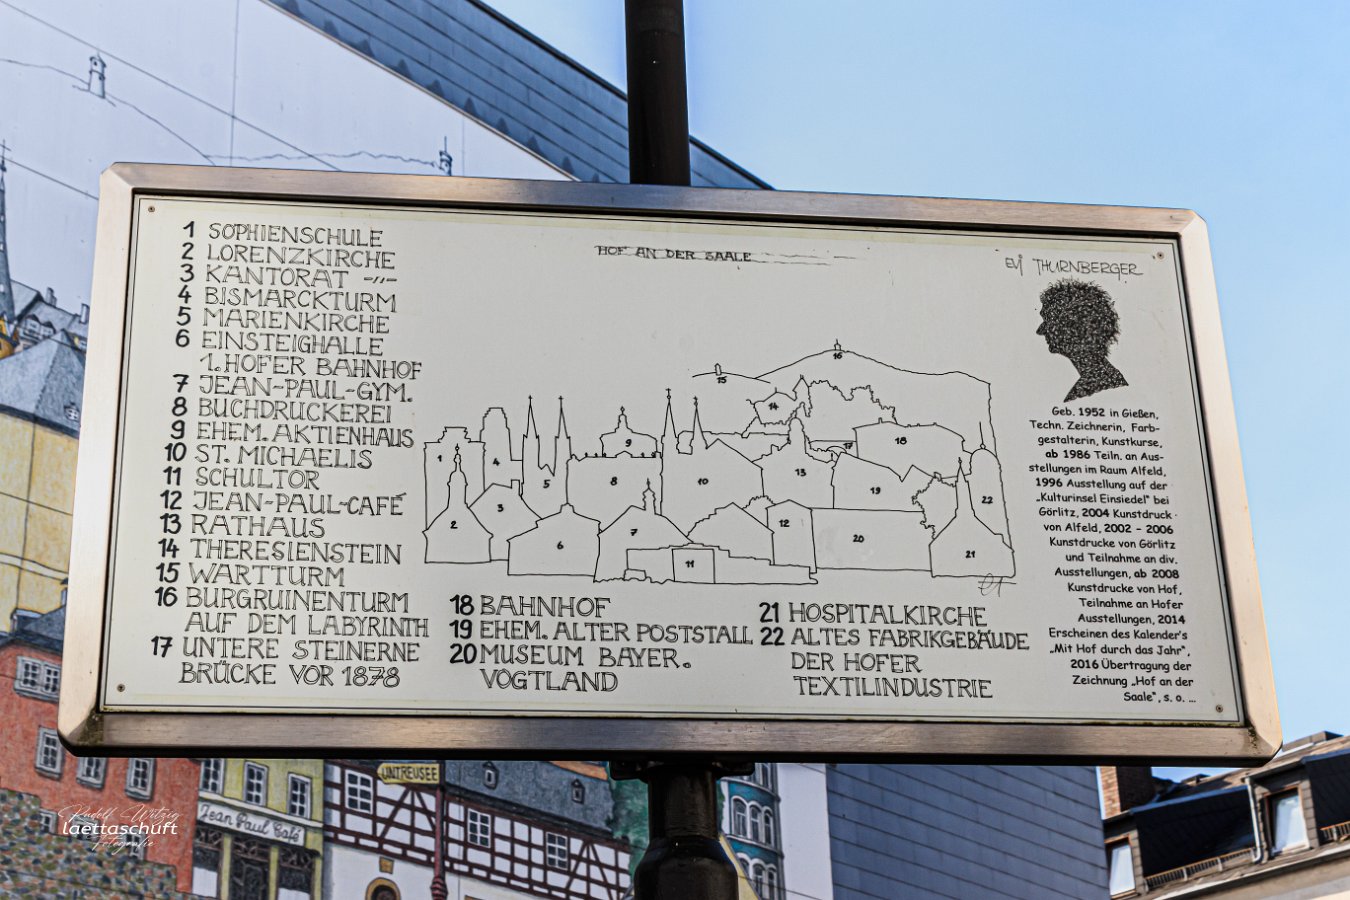 1 SOPHIENSCHULE
2 LORENZKIRCHE
3 KANTORAT -"-
4 BISMARCKTURM
5 MARIENKIRCHE
6 EINSTEIGHALLE
1. HOFER BAHNHOF
7 JEAN-PAUL-GYM.
8 BUCHDRUCKEREI
9 EHEM. AKTIENHAUS
10 ST. MICHAELIS
11 SCHULTOR
12 JEAN-PAUL-CAFÉ
13 RATHAUS
14 THERESIENSTEIN
15 WARTTURM
16 BURGRUINENTURM
AUF DEM LABYRINTH
17 UNTERE STEINERNE
BRÜCKE VOR 1878
18 BAHNHOF
19 EHEM. ALTER POSTSTALL
20 MUSEUM BAYER.
VOGTLAND
21 HOSPITALKIRCHE
22 ALTES FABRIKGEBÄUDE
DER HOFER
TEXTILINDUSTRIE
HOF AN DER SAALE
16
15
14
17
18
9
1
4
5
8
10
13
19
22
2
3
6
7
12
20
11
21
EVI THURNBERGER
Geb. 1952 in Gießen,
Techn. Zeichnerin, Farb-
gestalterin, Kunstkurse,
ab 1986 Teiln. an Aus-
stellungen im Raum Alfeld,
1996 Ausstellung auf der
„Kulturinsel Einsiedel" bei
Görlitz, 2004 Kunstdruck
von Alfeld, 2002 - 2006
Kunstdrucke von Görlitz
und Teilnahme an div.
Ausstellungen, ab 2008
Kunstdrucke von Hof,
Teilnahme an Hofer
Ausstellungen, 2014
Erscheinen des Kalender's
„Mit Hof durch das Jahr",
2016 Übertragung der
Zeichnung „Hof an der
Saale", s. o. ...
UNTREUSEE
Jean Paul Café
Rudolf Witzig
laettaschuft
Fotografie